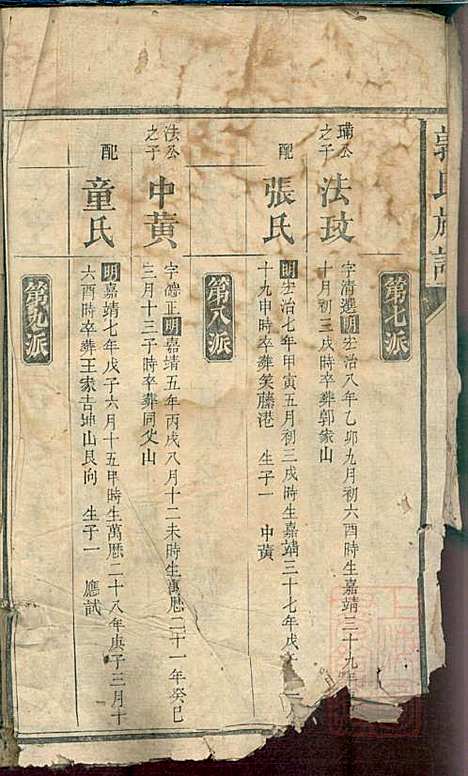 郭氏族譜
第七派
璊公之子
法玟
字清選明宏治八年乙卯九月初六酉時生嘉靖三十九年
十月初三戌時卒葬郭家山
配
張氏
明宏治七年甲寅五月初三戌時生嘉靖三十七年戊
十九申時卒葬笑藤港 生子一 中黄
第八派
法公之子
中黄
字德正明嘉靖五年丙戌八月十二未時生萬曆二十一年癸巳
三月十三子時卒葬同父山
配
童氏
明嘉靖七年戊子六月十五申時生萬曆二十八年庚子三月十
六酉時卒葬王家吉坤山艮向 生子一 應試
第九派